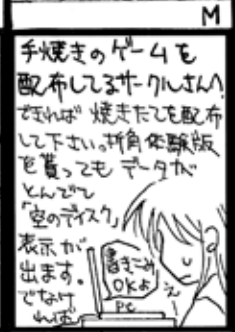 M
手焼きのゲームを
配布してるサークルさんへ
できれば 焼きたてを配布
して下さいっ折角体験版
を貰っても データが
とんでて
「空のディスク」
表示が
出ます。
でなけ
れば
書きこみ
OKよ
PC
え